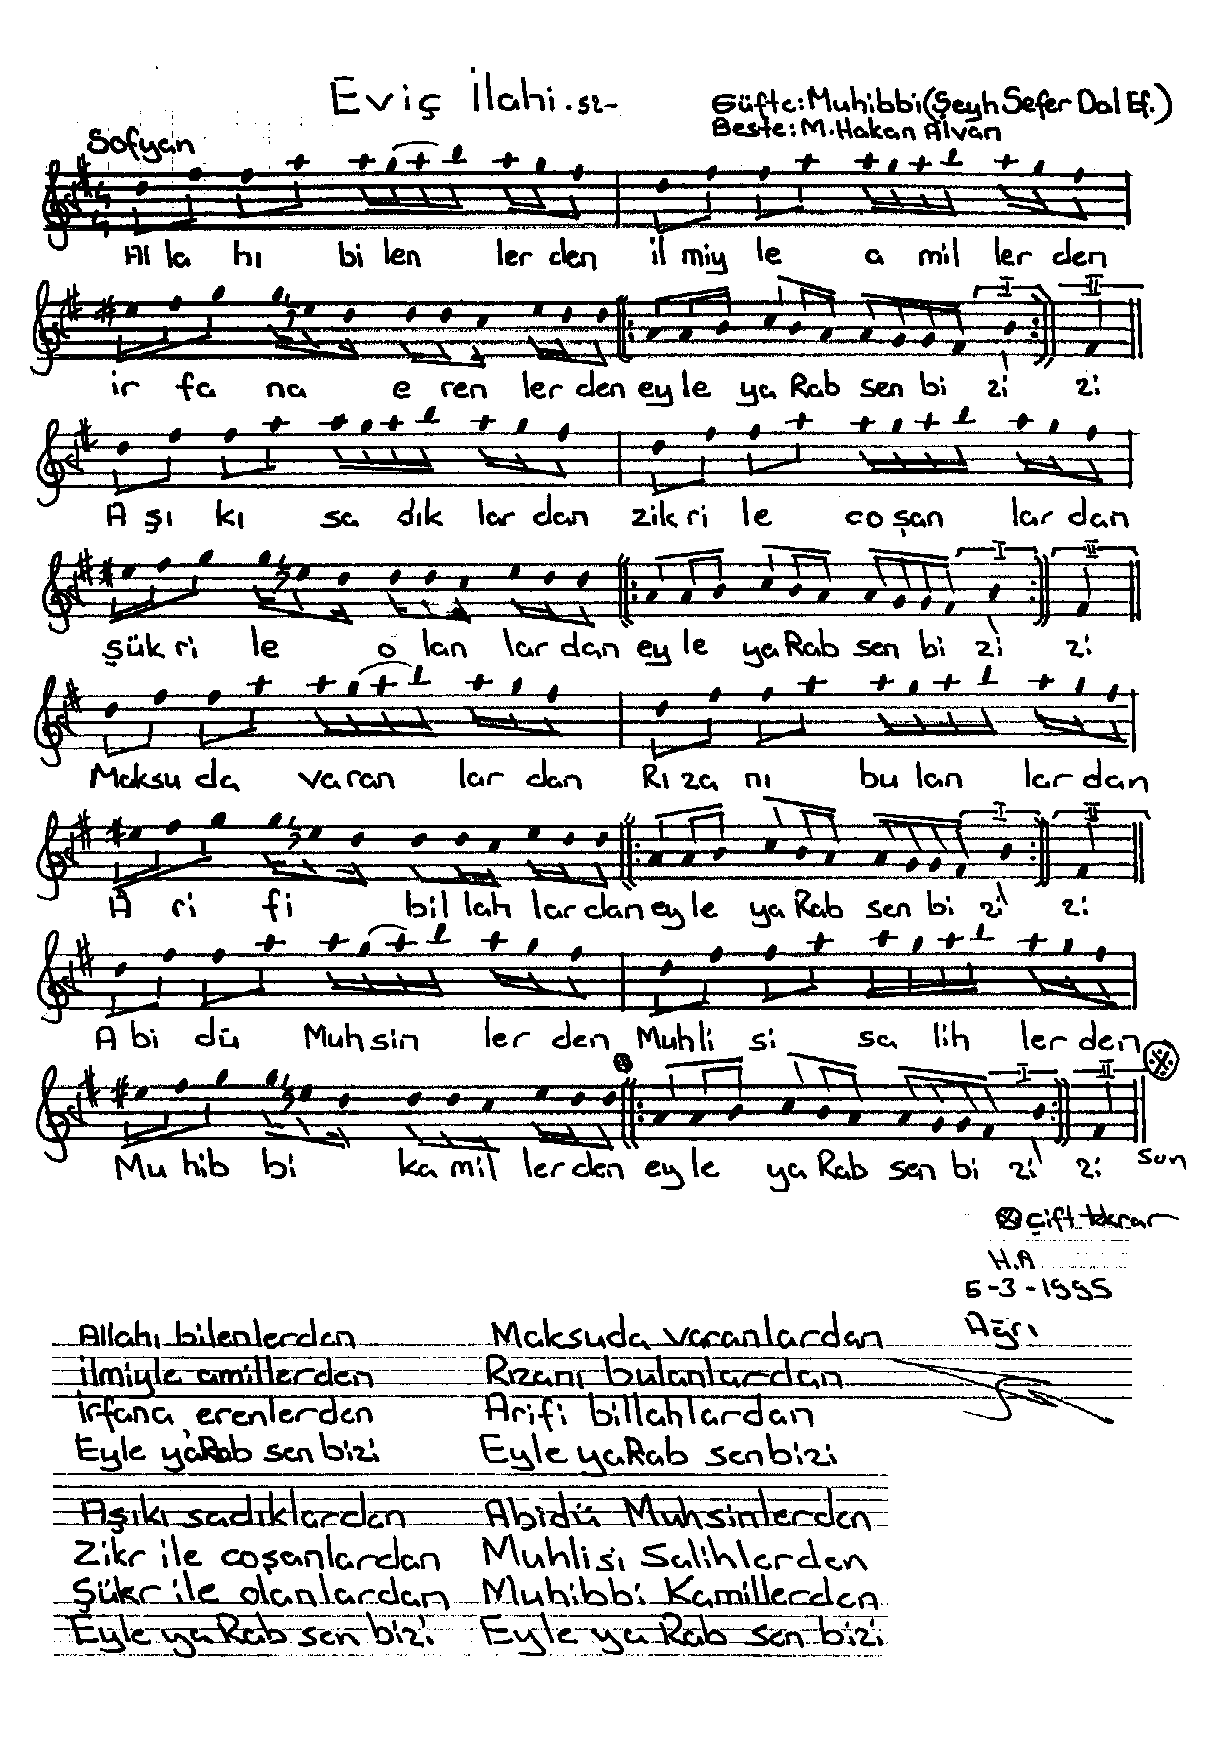 Eviç İlahi .52-
Güfte: Muhibbi (Şeyh Sefer Dal Ef.)
Beste: M. Hakan Alvan
Sofyan
Al la hı bi len ler den il miy le a mil ler den
I II
ir fa na e ren ler den ey le ya Rab sen bi zi zi
A şı kı sa dık lar dan zik ri le co şan lar dan
I II
şük ri le o lan lar dan ey le ya Rab sen bi zi zi
Maksu da va ran lar dan Rı za nı bu lan lar dan
I II
A ri fi bil lah lar dan ey le ya Rab sen bi zi zi
A bi dü Muh sin ler den Muh li si sa lih ler den
I II
Mu hib bi ka mil ler den ey le ya Rab sen bi zi zi son
çift tekrar
H.A
6-3-1995
Ağrı
Allahı bilenlerden
İlmiyle amillerden
İrfana erenlerden
Eyle ya Rab sen bizi
Aşıkı sadıklardan
Zikr ile coşanlardan
Şükr ile olanlardan
Eyle ya Rab sen bizi
Maksuda varanlardan
Rızanı bulanlardan
Arifi billahlardan
Eyle ya Rab sen bizi
Abidü Muhsinlerden
Muhlisi Salihlerden
Muhibbi Kamillerden
Eyle ya Rab sen bizi